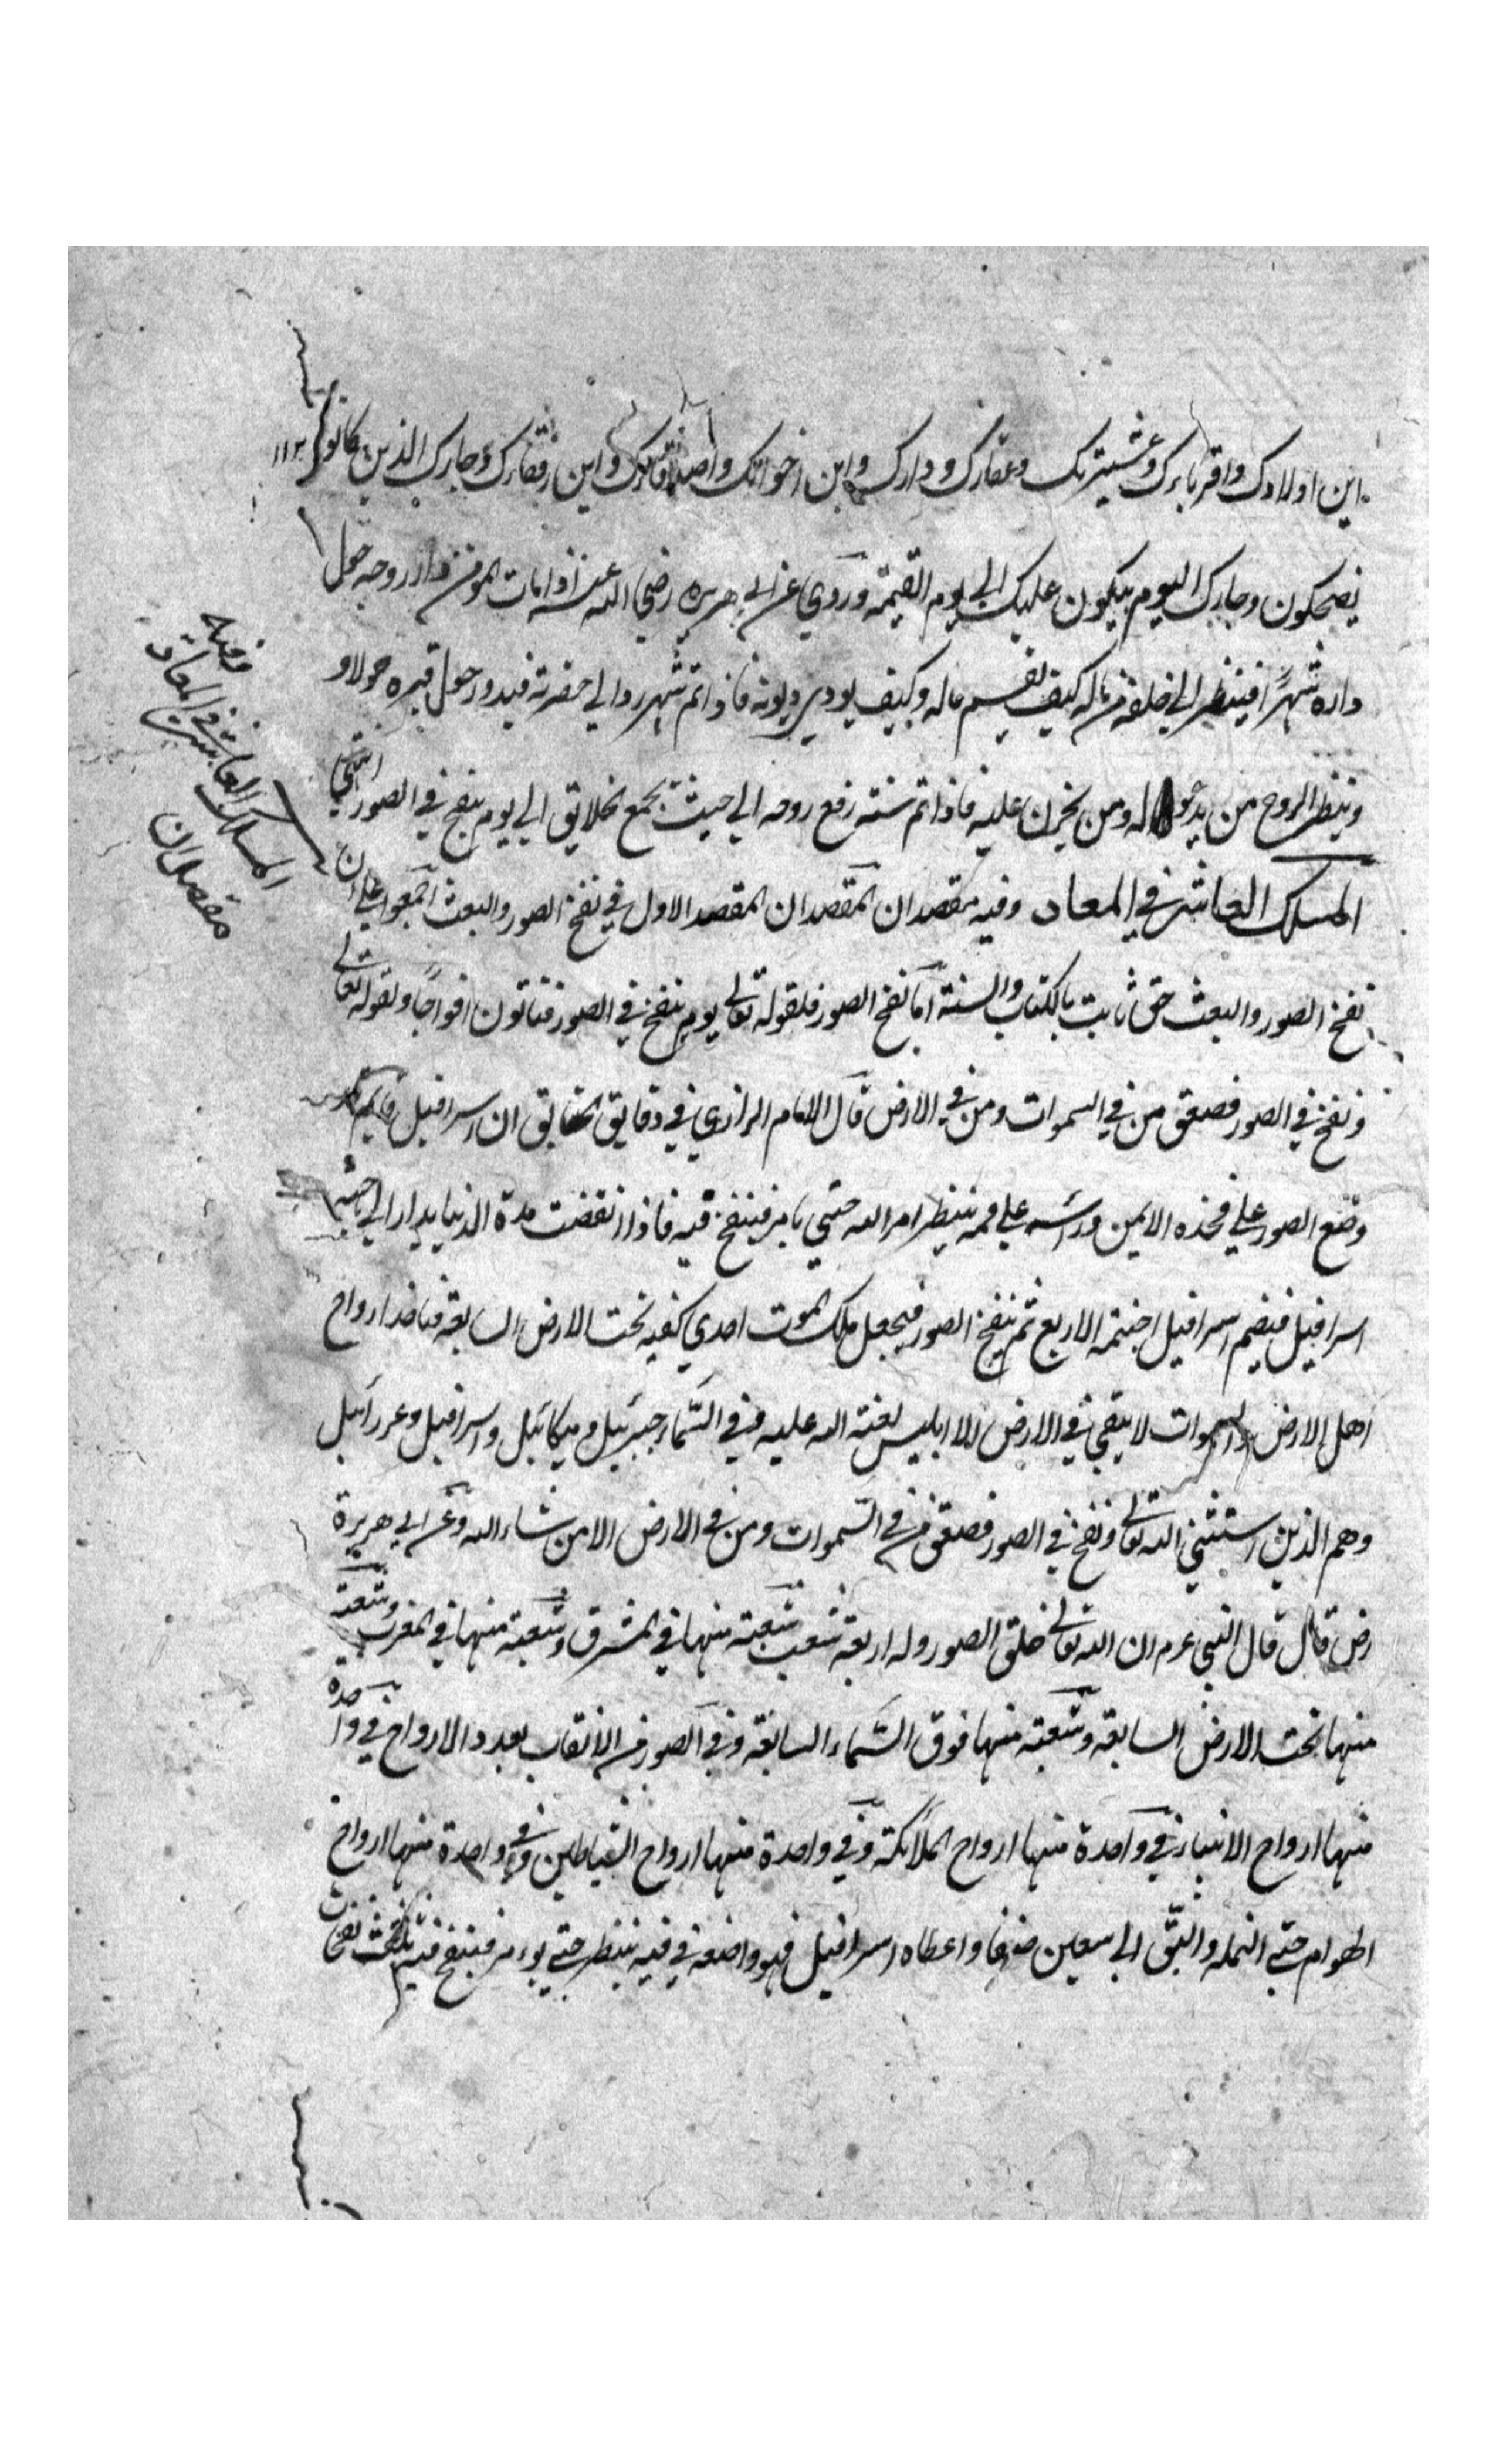 اين اولادك واقرباءك وعشيرتك وعقارك ودارك واين اخوانك واصدقاؤك واين رفقاءك وجارك الذين كانوا ١١٣
يضحكون وجارك اليوم يبكون عليك الي يوم القيمة وروي عن ابي هريره رضي الله عنه اذا مات المؤمن دار روحه حول
داره شهرًا فينظر الي خلفه من ماله كيف يقسم ماله وكيف يودي ديونه فاذا تم شهر ردا الي حفرته فيدور حول قبره حولا و
وينظر الروح من يدعو له ومن يحزن عليه فاذا تم سنته رفع روحه الي حيث يجمع الخلايق الي يوم ينفخ في الصور انتهي
المسلك العاشر في المعاد وفيه مقصدان المقصدان المقصد الاول في نفخ الصور والبعث اجمعوا علي ان
نفخ الصور والبعث حق ثابت بالكتاب والسنة اما نفخ الصور فلقوله تعالي يوم ينفخ في الصور فتاتون افواجًا ولقوله تعالي
ونفخ في الصور فصعق من في السموات ومن في الارض قال الامام الرازي في دقايق الحقايق ان اسرافيل قايم
وضع الصور علي فخذه الايمن وراسه علي فمه ينتظر امر الله حتي يامر فينفخ فيه فاذا انقضت مدة الدنيا يدار الي جبهة
اسرافيل فيضم اسرافيل اجنحته الاربع ثم ينفخ الصور فيجعل ملك الموت احدي كفيه تحت الارض السابعة فياخذ ارواح
اهل الارض والسموات لا يبقي في الارض الا ابليس لعنة الله عليه وفي السماء جبرئيل وميكائيل واسرافيل وعزرائيل
وهم الذين استثني الله تعالي ونفخ في الصور فصعق من في السموات ومن في الارض الا من شاء الله وعن ابي هريرة
رض قال قال النبي عرم ان الله تعالي خلق الصور وله اربعة شعب شعبة منها في المشرق وشعبة منها في المغرب وشعبة
منها تحت الارض السابعة وشعبة منها فوق السماء السابعة وفي الصور من الانقاب بعدد الارواح في واحدة
منها ارواح الانبياء وفي واحدة منها ارواح الملائكة وفي واحدة منها ارواح الشياطين وفي واحدة منها ارواح
الهوام حتي النمله والبق الي سبعين صنفا واعطاه اسرافيل فهو واضعه في فيه ينتظر حتي يؤمر فينفخ فيه ثلث نفخات
المسلك العاشر في المعاد
وفيه
مقصدان